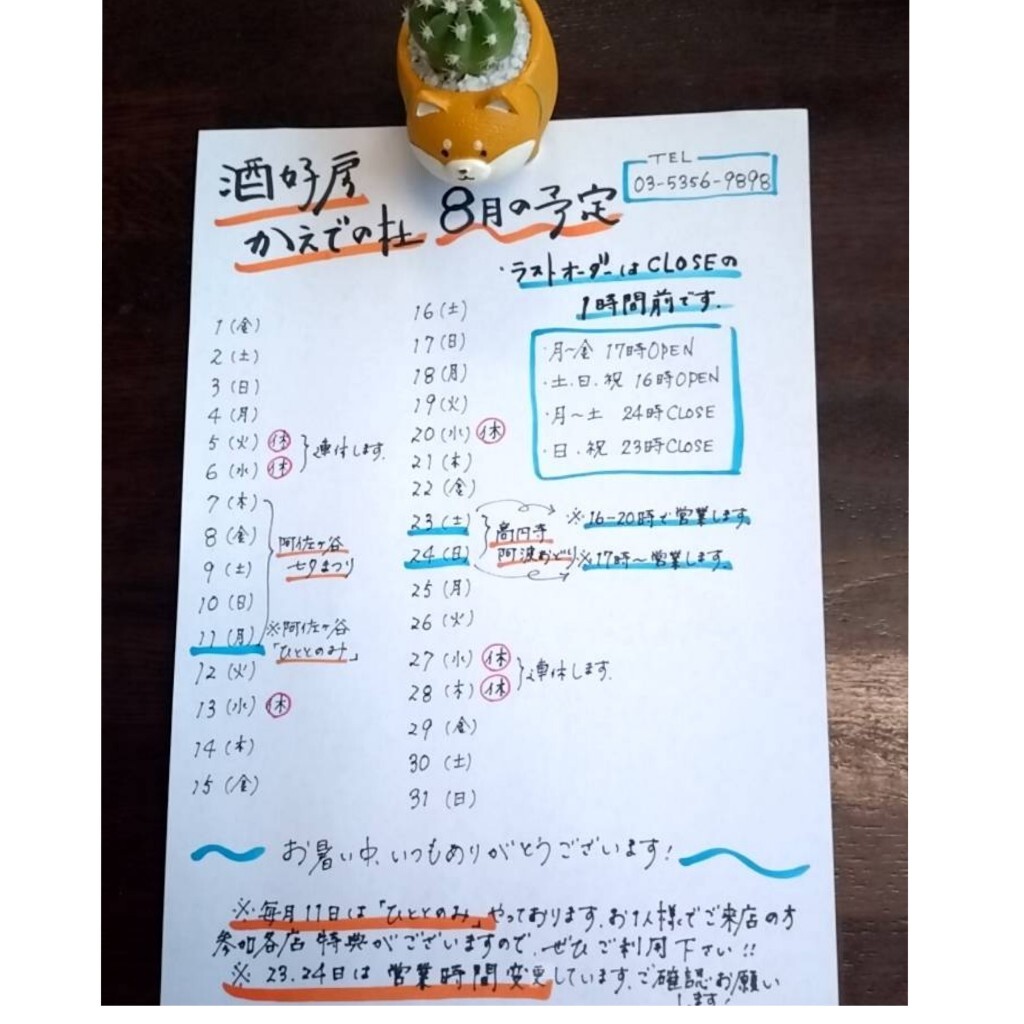 酒好房
かえでの杜 8月の予定
TEL
03-5356-9898
・ラストオーダーはCLOSEの
1時間前です.
・月〜金 17時OPEN
・土.日.祝 16時OPEN
・月〜土 24時CLOSE
・日.祝 23時CLOSE
1(金)
2(土)
3(日)
4(月)
5(火) 休
6(水) 休
連休します.
7(木)
8(金)
9(土)
10(日)
11(月)
阿佐ヶ谷
七夕まつり
※阿佐ヶ谷
「ひととのみ」
12(火)
13(水) 休
14(木)
15(金)
16(土)
17(日)
18(月)
19(火)
20(水) 休
21(木)
22(金)
23(土)
24(日)
高円寺
阿波おどり
※16-20時で営業します
※17時〜営業します.
25(月)
26(火)
27(水) 休
28(木) 休
連休します.
29(金)
30(土)
31(日)
お暑い中、いつもありがとうございます!
※毎月11日は「ひととのみ」やっております.お1人様でご来店の方
参加各店特典がございますので、ぜひご利用下さい!!
※23.24日は営業時間変更しています.ご確認お願い
します!